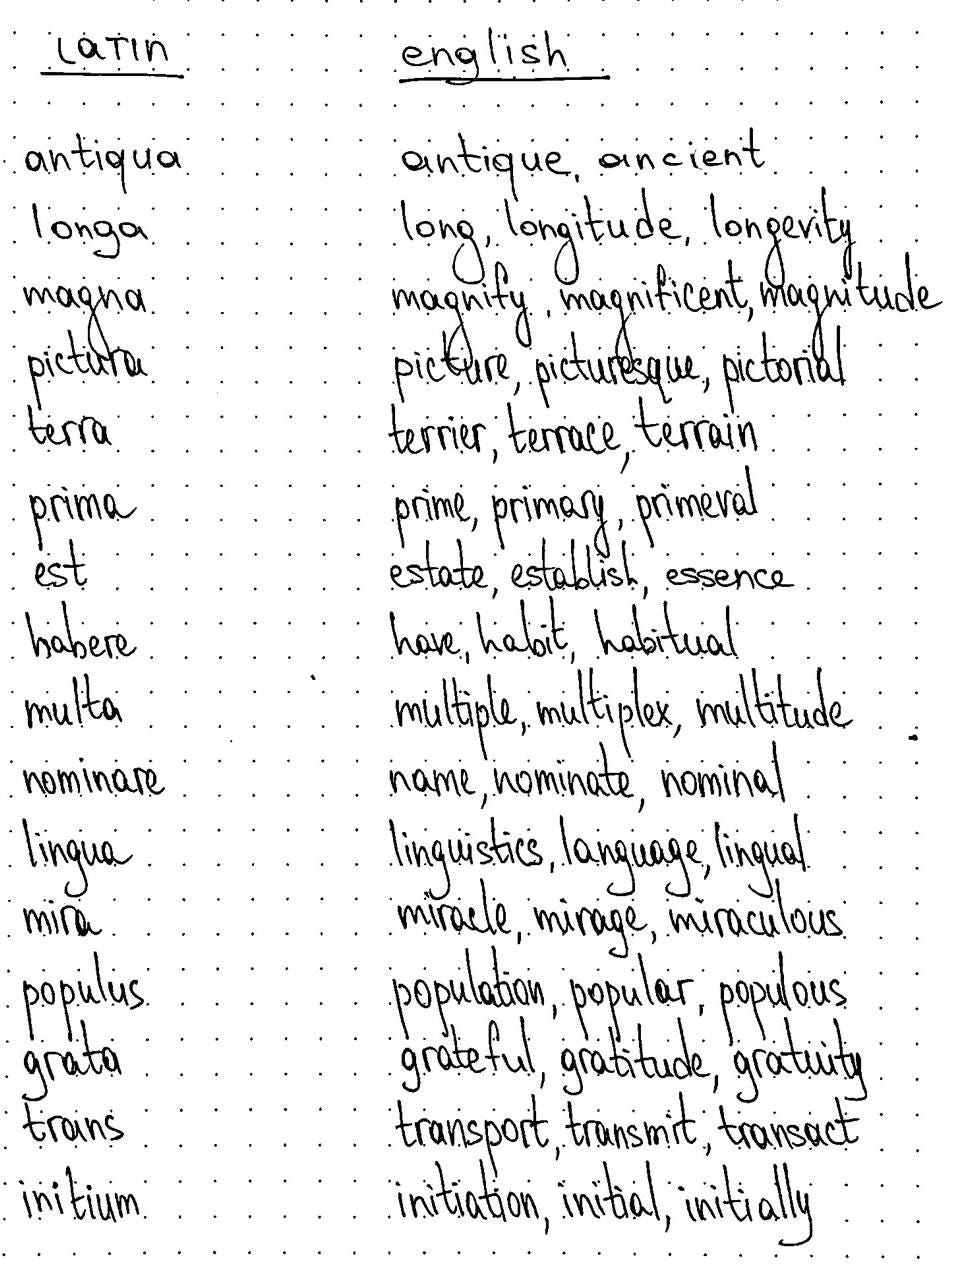 LATIN english
antiqua antique, ancient
longa long, longitude, longevity
magna magnify, magnificent, magnitude
pictura picture, picturesque, pictorial
terra terrier, terrace, terrain
prima prime, primary, primeval
est estate, establish, essence
habere have, habit, habitual
multa multiple, multiplex, multitude
nominare name, nominate, nominal
lingua linguistics, language, lingual
mira miracle, mirage, miraculous
populus population, popular, populous
grata grateful, gratitude, gratuity
trans transport, transmit, transact
initium initiation, initial, initially